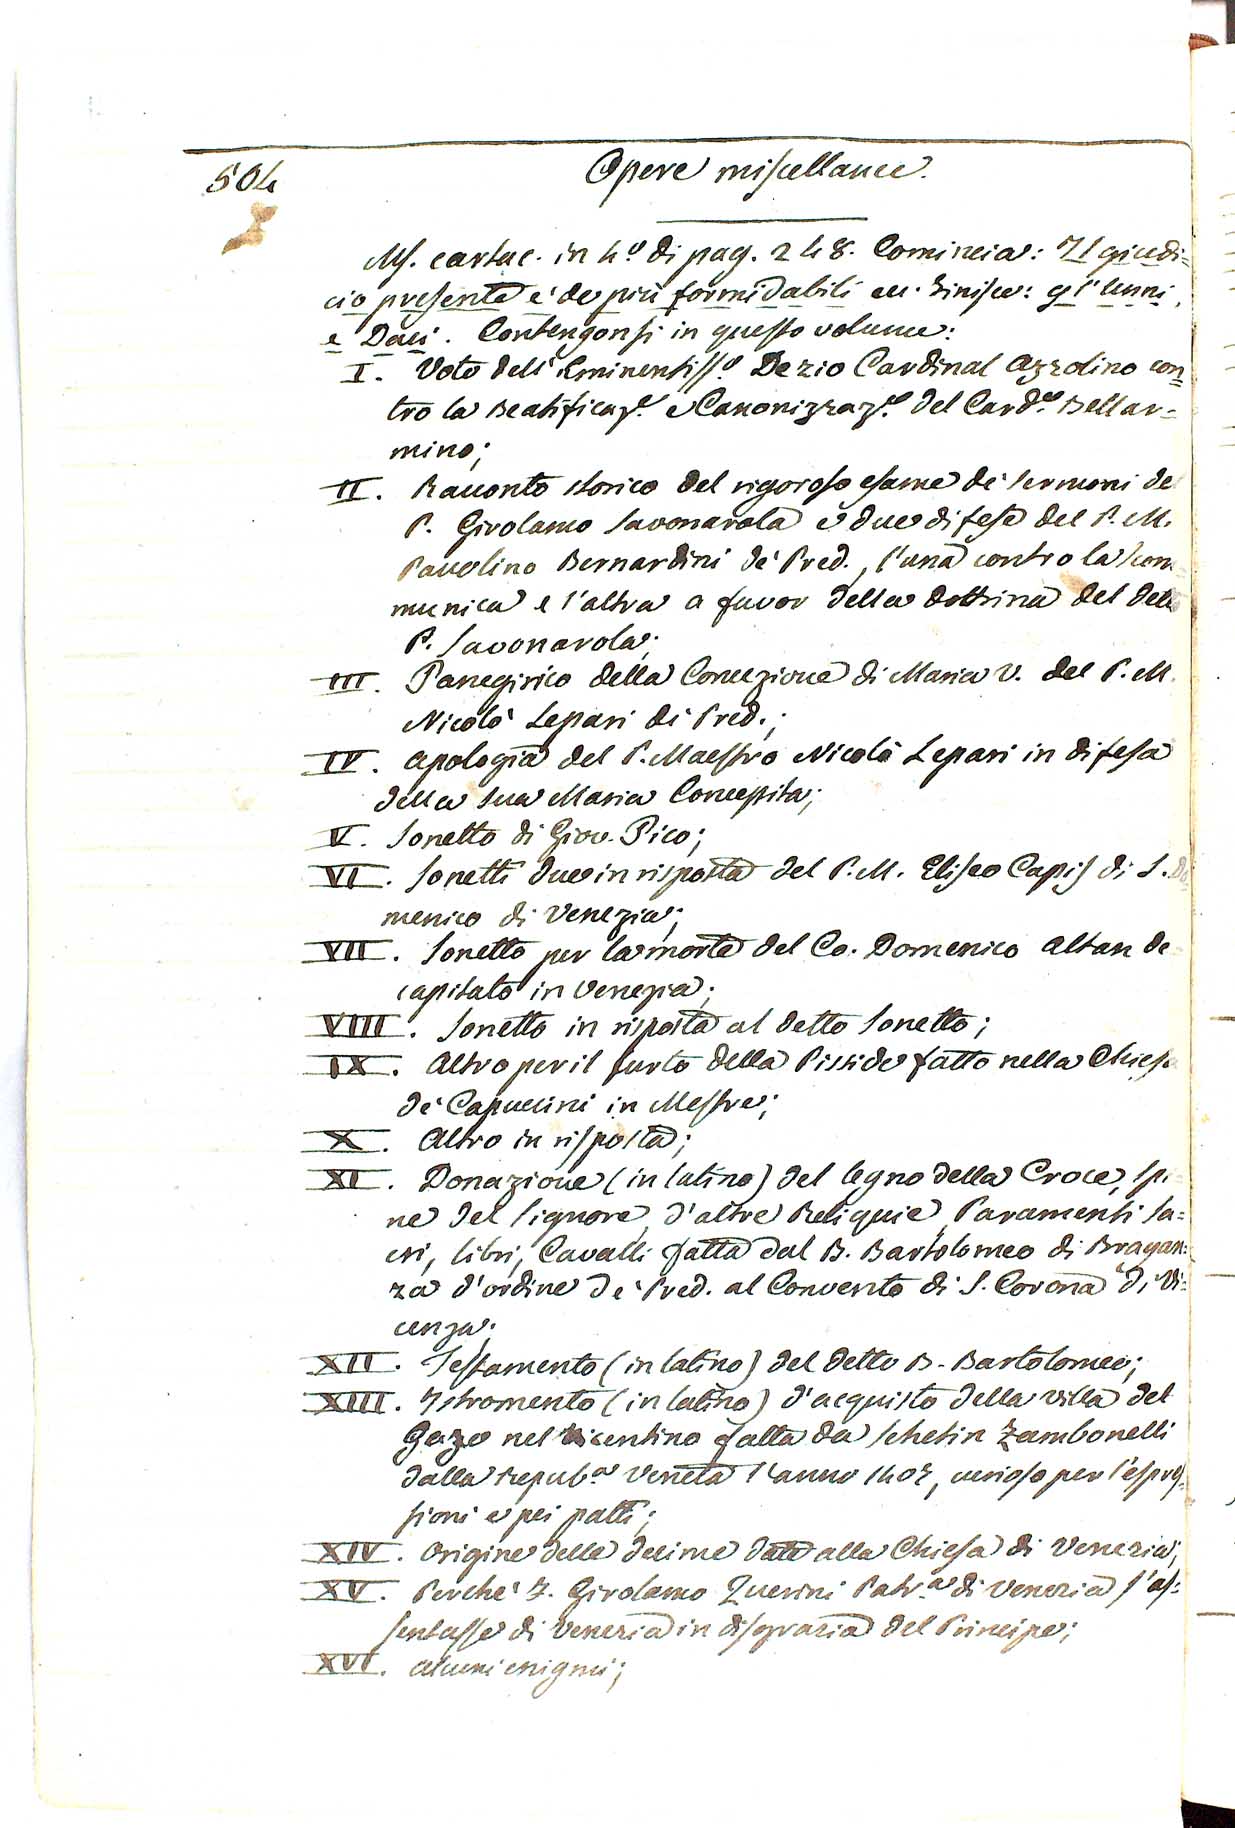 504
Opere miscellanee.
Ms. cartac. in 4.º di pag. 248. Comincia: Il giudi=
cio presente è de più formidabili ecc. Finisce: gl'Unni,
e Daci. Contengonsi in questo volume:
I. Voto dell'Eminentiss.º Dezio Cardinal Azzolino con=
tro la Beatificaz.e e Canonizzaz.e del Card.e Bellar=
mino;
II. Racconto storico del rigoroso esame de' sermoni del
P. Girolamo Savonarola e due difese del P. M.
Paolino Bernardini de' Pred., l'una contro la scom=
munica e l'altra a favor della dottrina del detto
P. Savonarola;
III. Panegirico della Concezione di Maria V. del P. M.
Nicolò Lepari di Pred.;
IV. Apologia del P. Maestro Nicolò Lepari in difesa
della sua Maria Concepita;
V. Sonetto di Giov. Pico;
VI. Sonetti due in risposta del P. M. Eliseo Capis di S. Do=
menico di Venezia;
VII. Sonetto per la morte del Co. Domenico Altan de=
capitato in Venezia;
VIII. Sonetto in risposta al detto sonetto;
IX. Altro per il furto della Pisside fatto nella Chiesa
de' Capuccini in Mestre;
X. Altro in risposta;
XI. Donazione (in latino) del legno della Croce, spi=
ne del Signore, d'altre Reliquie, Paramenti sa=
cri, libri, Cavalli fatta dal B. Bartolomeo di Bragan=
za d'ordine de' Pred. al Convento di S. Corona di Vi=
cenza;
XII. Testamento (in latino) del detto B. Bartolomeo;
XIII. Istromento (in latino) d'acquisto della villa del
Gazo nel Vicentino fatta da Schetin Zambonelli
dalla Repub.ca Veneta l'anno 1407, curioso per l'espres=
sioni e pei patti;
XIV. Origine delle decime date alla Chiesa di Venezia;
XV. Perchè F. Girolamo Querini Patr.ca di Venezia s'as=
sentasse di Venezia in disgrazia del Principe;
XVI. Alcuni enigmi;